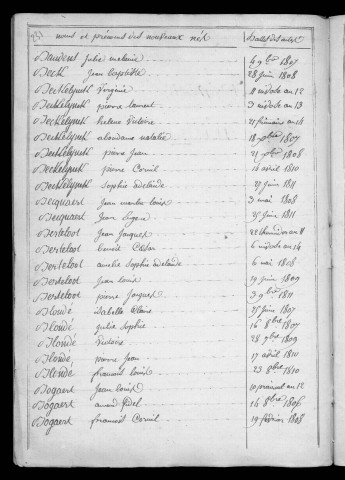 noms et prénoms des nouveaux nés
Baudent julie melanie 4 9bre 1807
Becth Jean baptiste 28 juin 1808
Bectkelynck Virginie 11 nivôse an 12
Bectkelynck pierre laurent 3 nivôse an 13
Bectkelynck helene Victoire 21 frimaire an 14
Bectkelynck abondance natalie 18 1807
Bectkelynck pierre Jean 21 1808
Bectkelynck pierre Cornil 16 avril 1810
Bectkelynck Sophie adelaide 27 juin 1811
Becquaert Jean marie louis 3 mai 1808
Becquaert Jean Eugene 25 juin 1811
Berteloot Jean Jacques 22 thermidor an 11
Berteloot benoit César 6 nivôse an 14
Berteloot amelie Sophie adelaide 6 mai 1808
Berteloot Jean louis 19 juin 1809
Berteloot pierre Jacques 3 9bre 1811
Blondé isabelle Claire 25 juin 1807
Blondé julie Sophie 16 8bre 1807
Blondé Victoire 28 7bre 1809
Blondé pierre Jean 17 avril 1810
Blondé francois louis 23 8bre 1810
Bogaert Jean louis 10 prairial an 12
Bogaert amand fidel 14 8bre 1806
Bogaert francois Cornil 19 février 1808